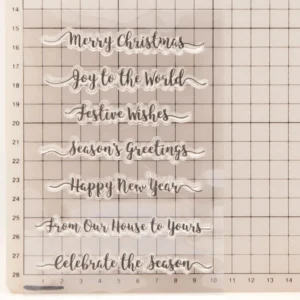 14
15
16
17
18
19
20
21
22
23
24
25
26
27
28
Merry Christmas
Joy to the World
Festive Wishes
Season's Greetings
Happy New Year
From Our House to Yours
Celebrate the Season
1 2 3 4 5 6 7 8 9 10 11 12 13 14